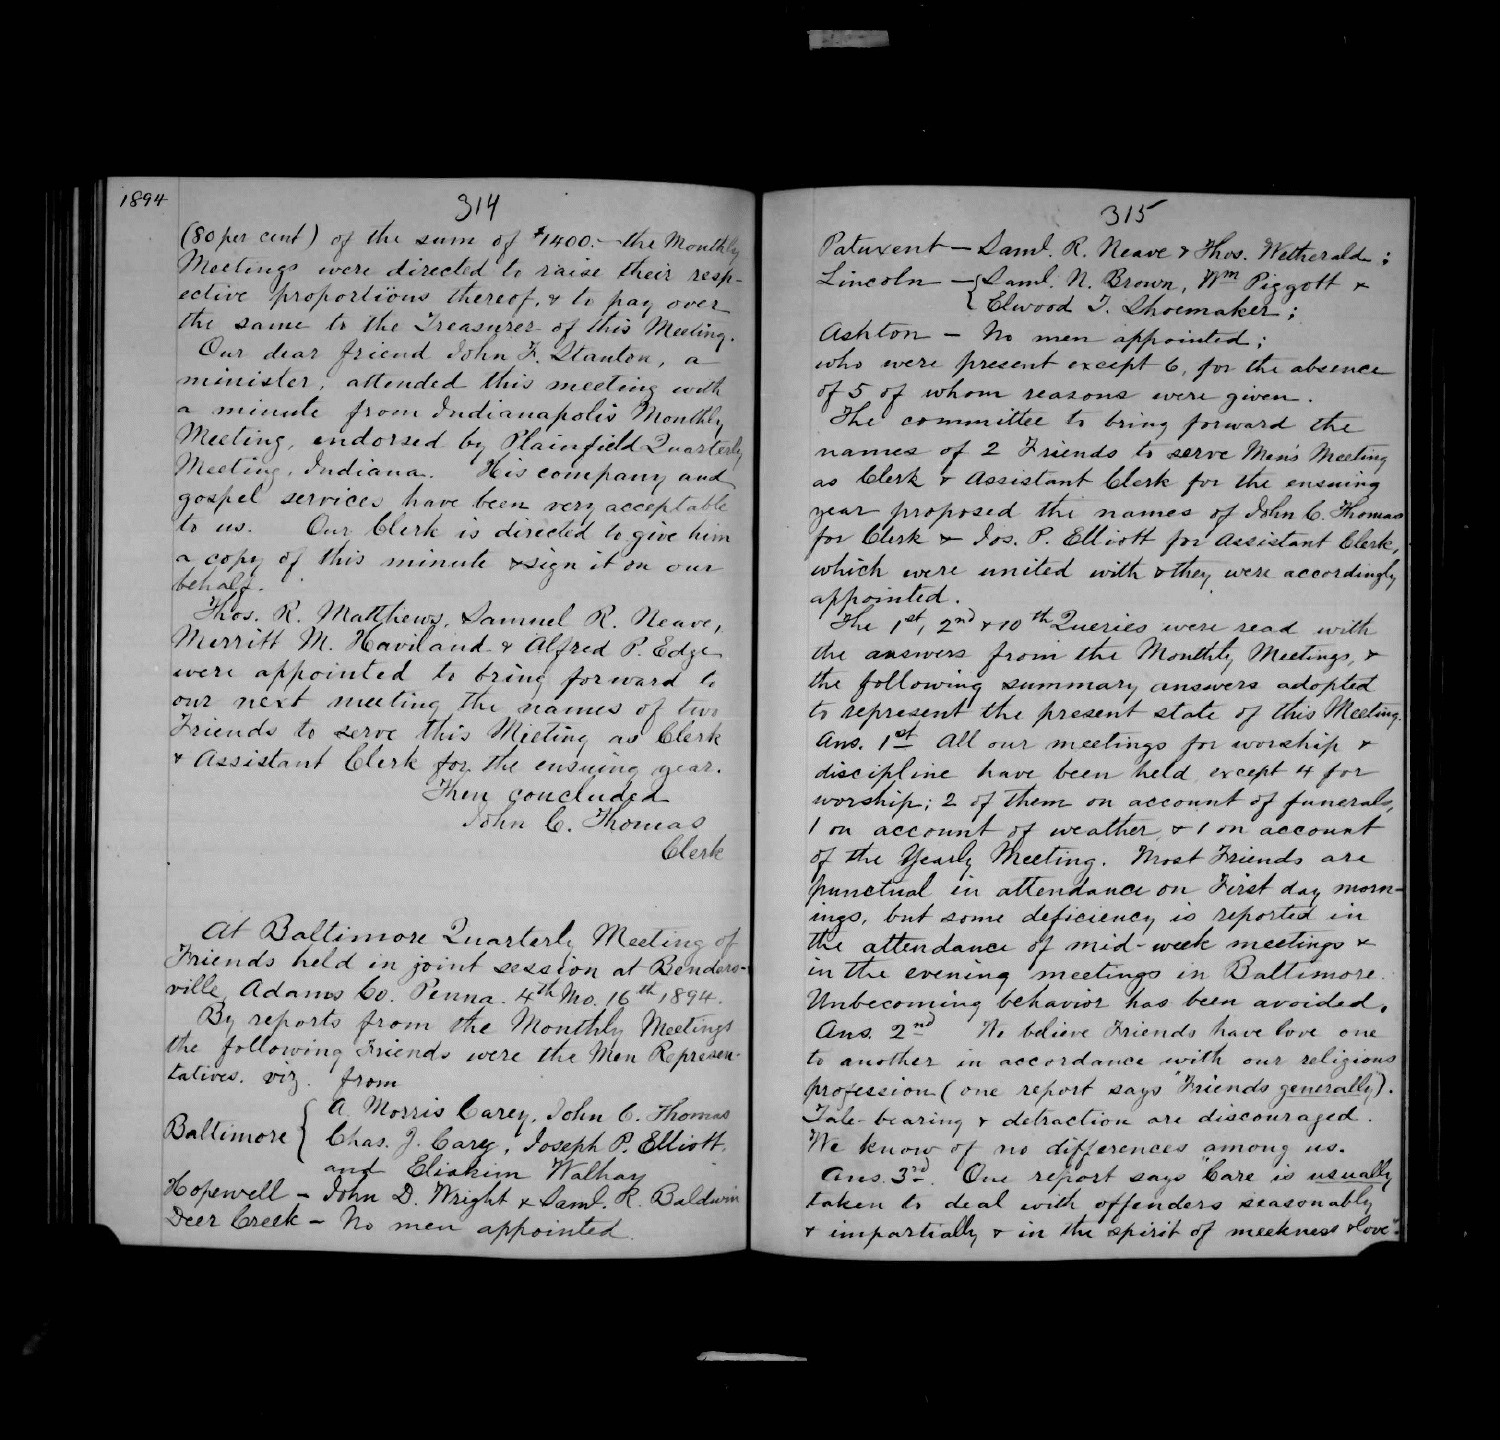 1894
314
(80 per cent) of the sum of $1400.— the Monthly
Meetings were directed to raise their resp-
ective proportions thereof, & to pay over
the same to the Treasurer of this Meeting.
Our dear friend John F. Stanton, a
minister, attended this meeting with
a minute from Indianapolis Monthly
Meeting, endorsed by Plainfield Quarterly
Meeting, Indiana. His company and
gospel services have been very acceptable
to us. Our Clerk is directed to give him
a copy of this minute & sign it on our
behalf.
Thos. R. Matthews, Samuel R. Neave,
Merritt M. Haviland & Alfred P. Edge
were appointed to bring forward to
our next meeting the names of two
Friends to serve this Meeting as Clerk
& Assistant Clerk for the ensuing year.
Then concluded
John C. Thomas
Clerk
At Baltimore Quarterly Meeting of
Friends held in joint session at Benders-
ville, Adams Co. Penna. 4th Mo. 16th 1894.
By reports from the Monthly Meetings
the following Friends were the Men Represen-
tatives. viz. from
Baltimore { A. Morris Carey, John C. Thomas
Chas. J. Carey, Joseph P. Elliott,
and Eliakim Walhay
Hopewell – John D. Wright & Saml. R. Baldwin
Deer Creek – No men appointed.
315
Patuxent — Saml. R. Neave & Thos. Wetherald;
Lincoln — { Saml. N. Brown, Wm Piggott &
Elwood T. Shoemaker;
Ashton — No men appointed;
who were present except 6, for the absence
of 5 of whom reasons were given.
The committee to bring forward the
names of 2 Friends to serve Men's Meeting
as Clerk & Assistant Clerk for the ensuing
year proposed the names of John C. Thomas
for Clerk & Jos. P. Elliott for Assistant Clerk,
which were united with & they were accordingly
appointed.
The 1st, 2nd & 10th Queries were read with
the answers from the Monthly Meetings, &
the following summary answers adopted
to represent the present state of this Meeting.
Ans. 1st All our meetings for worship &
discipline have been held except 4 for
worship; 2 of them on account of funerals,
1 on account of weather, & 1 on account
of the Yearly Meeting. Most Friends are
punctual in attendance on First day morn-
ings, but some deficiency is reported in
the attendance of mid-week meetings &
in the evening meetings in Baltimore.
Unbecoming behavior has been avoided.
Ans. 2nd We believe Friends have love one
to another in accordance with our religious
profession (one report says "Friends generally").
Tale-bearing & detraction are discouraged.
We know of no differences among us.
Ans. 3rd. One report says "Care is usually
taken to deal with offenders seasonably
& impartially & in the spirit of meekness & love".